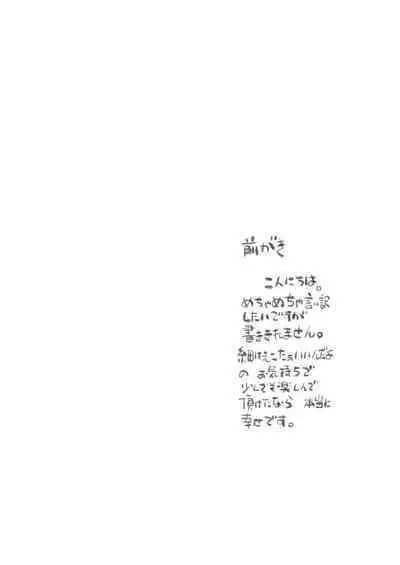 前がき
こんにちは。
めちゃめちゃ言い訳
したいですが
書ききれません。
細けぇこたぁいいんだよ
の お気持ちで
少しでも楽しんで
頂けたなら 本当に
幸せです。